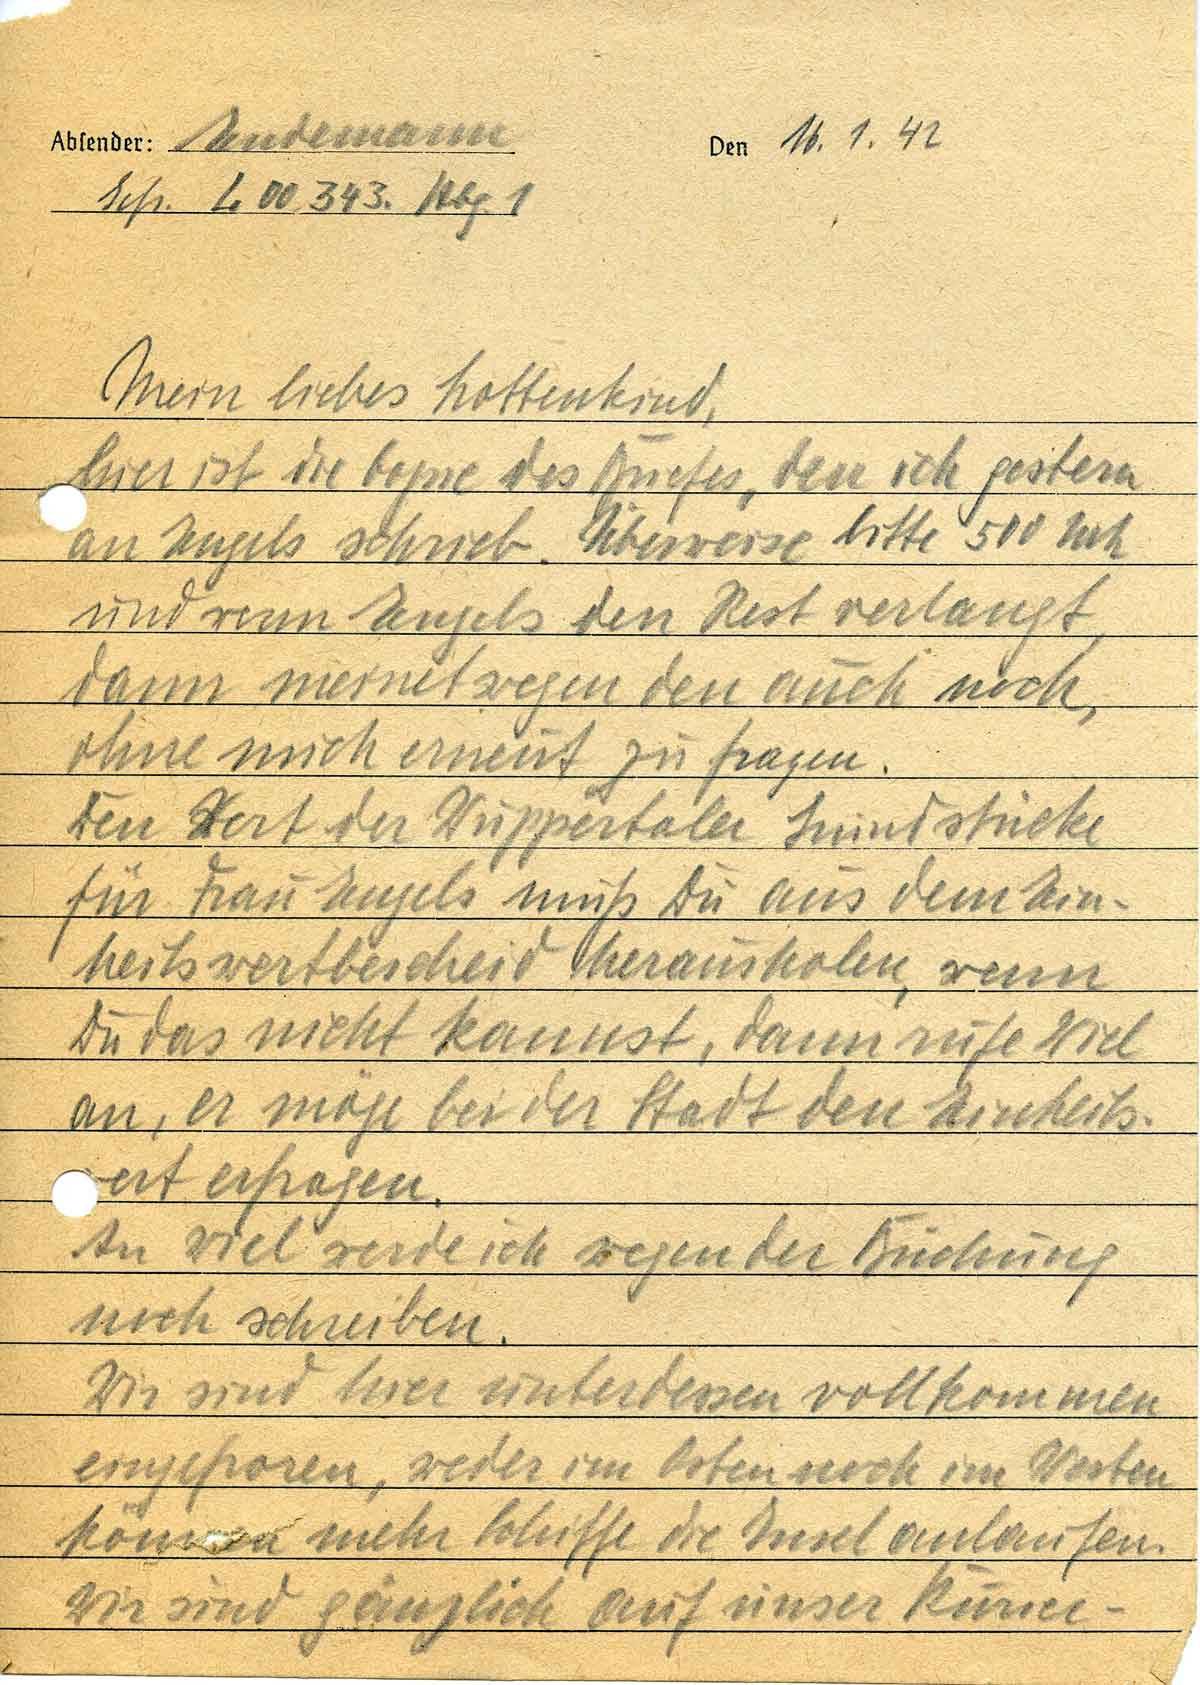 Absender: Endemann
Den 16. 1. 42
Gefr. L 00 343. Lbg. 1
Mein liebes Lottenkind,
hier ist die Copie des Briefes, den ich gestern
an Engels schrieb. Überweise bitte 500 Mk
und wenn Engels den Rest verlangt,
dann meinetwegen den auch noch,
ohne mich erneut zu fragen.
Den Wert der Wuppertaler Grundstücke
für Frau Engels muß Du aus dem Ein-
heitswertbescheid herausholen, wenn
Du das nicht kannst, dann rufe Viel
an, er möge bei der Stadt den Einheits-
wert erfragen.
An Viel werde ich wegen der Buchung
noch schreiben.
Wir sind hier unterdessen vollkommen
eingefroren, weder im Osten noch im Westen
können mehr Schiffe die Insel anlaufen.
Wir sind gänzlich auf unser Kurier-